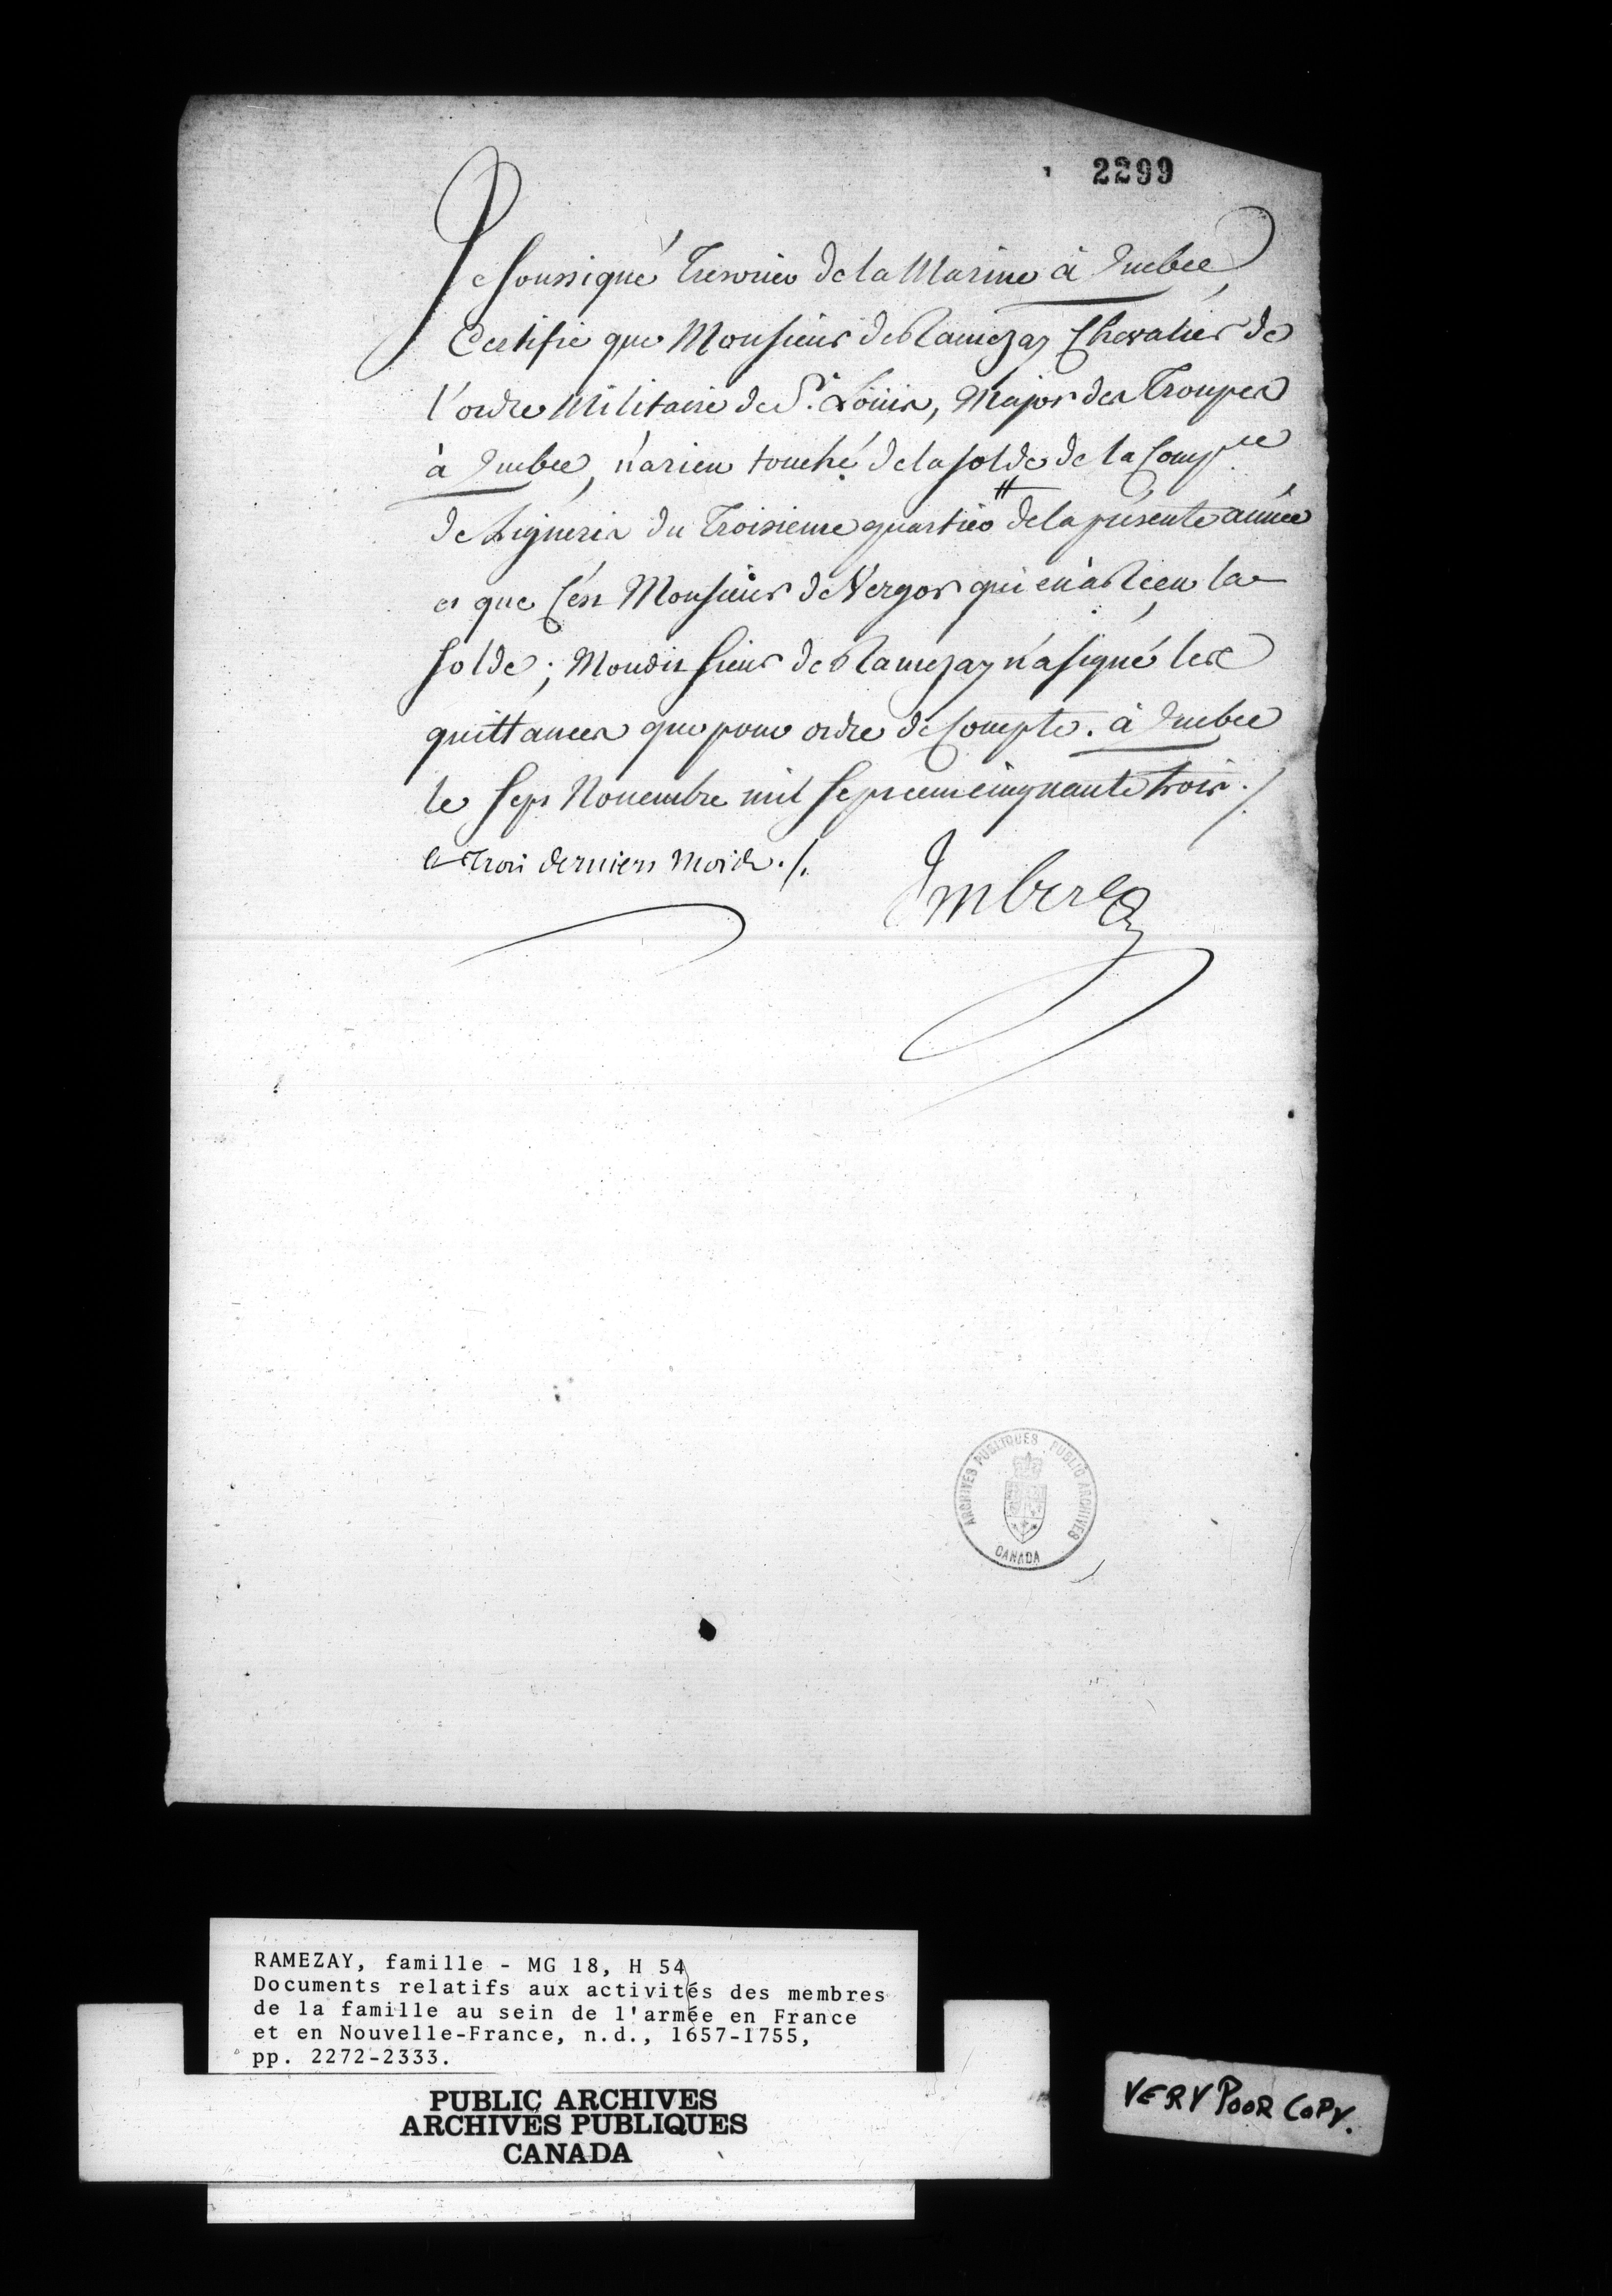 2299
Je soussigné Tresorier de la Marine à Quebec,
Certifie que Monsieur de Ramezay Chevalier de
l'ordre Militaire de St. Loüis, Major des Troupes
à Quebec, n'a rien touché de la solde de la Compie
de Ligneris du Troisieme quartier # de la présente année
et que C'est Monsieur de Vergor qui en à Reçu la
solde; Mondit sieur de Ramezay n'a signé les
quittances que pour ordre de Compte. à Quebec
le sept Novembre mil sept cent cinquante trois ./.
et Trois derniers Mois ./.
Imbert
ARCHIVES PUBLIQUES PUBLIC ARCHIVES
CANADA
RAMEZAY, famille - MG 18, H 54
Documents relatifs aux activités des membres
de la famille au sein de l'armée en France
et en Nouvelle-France, n.d., 1657-1755,
pp. 2272-2333.
PUBLIC ARCHIVES
ARCHIVES PUBLIQUES
CANADA
VERY POOR COPY.